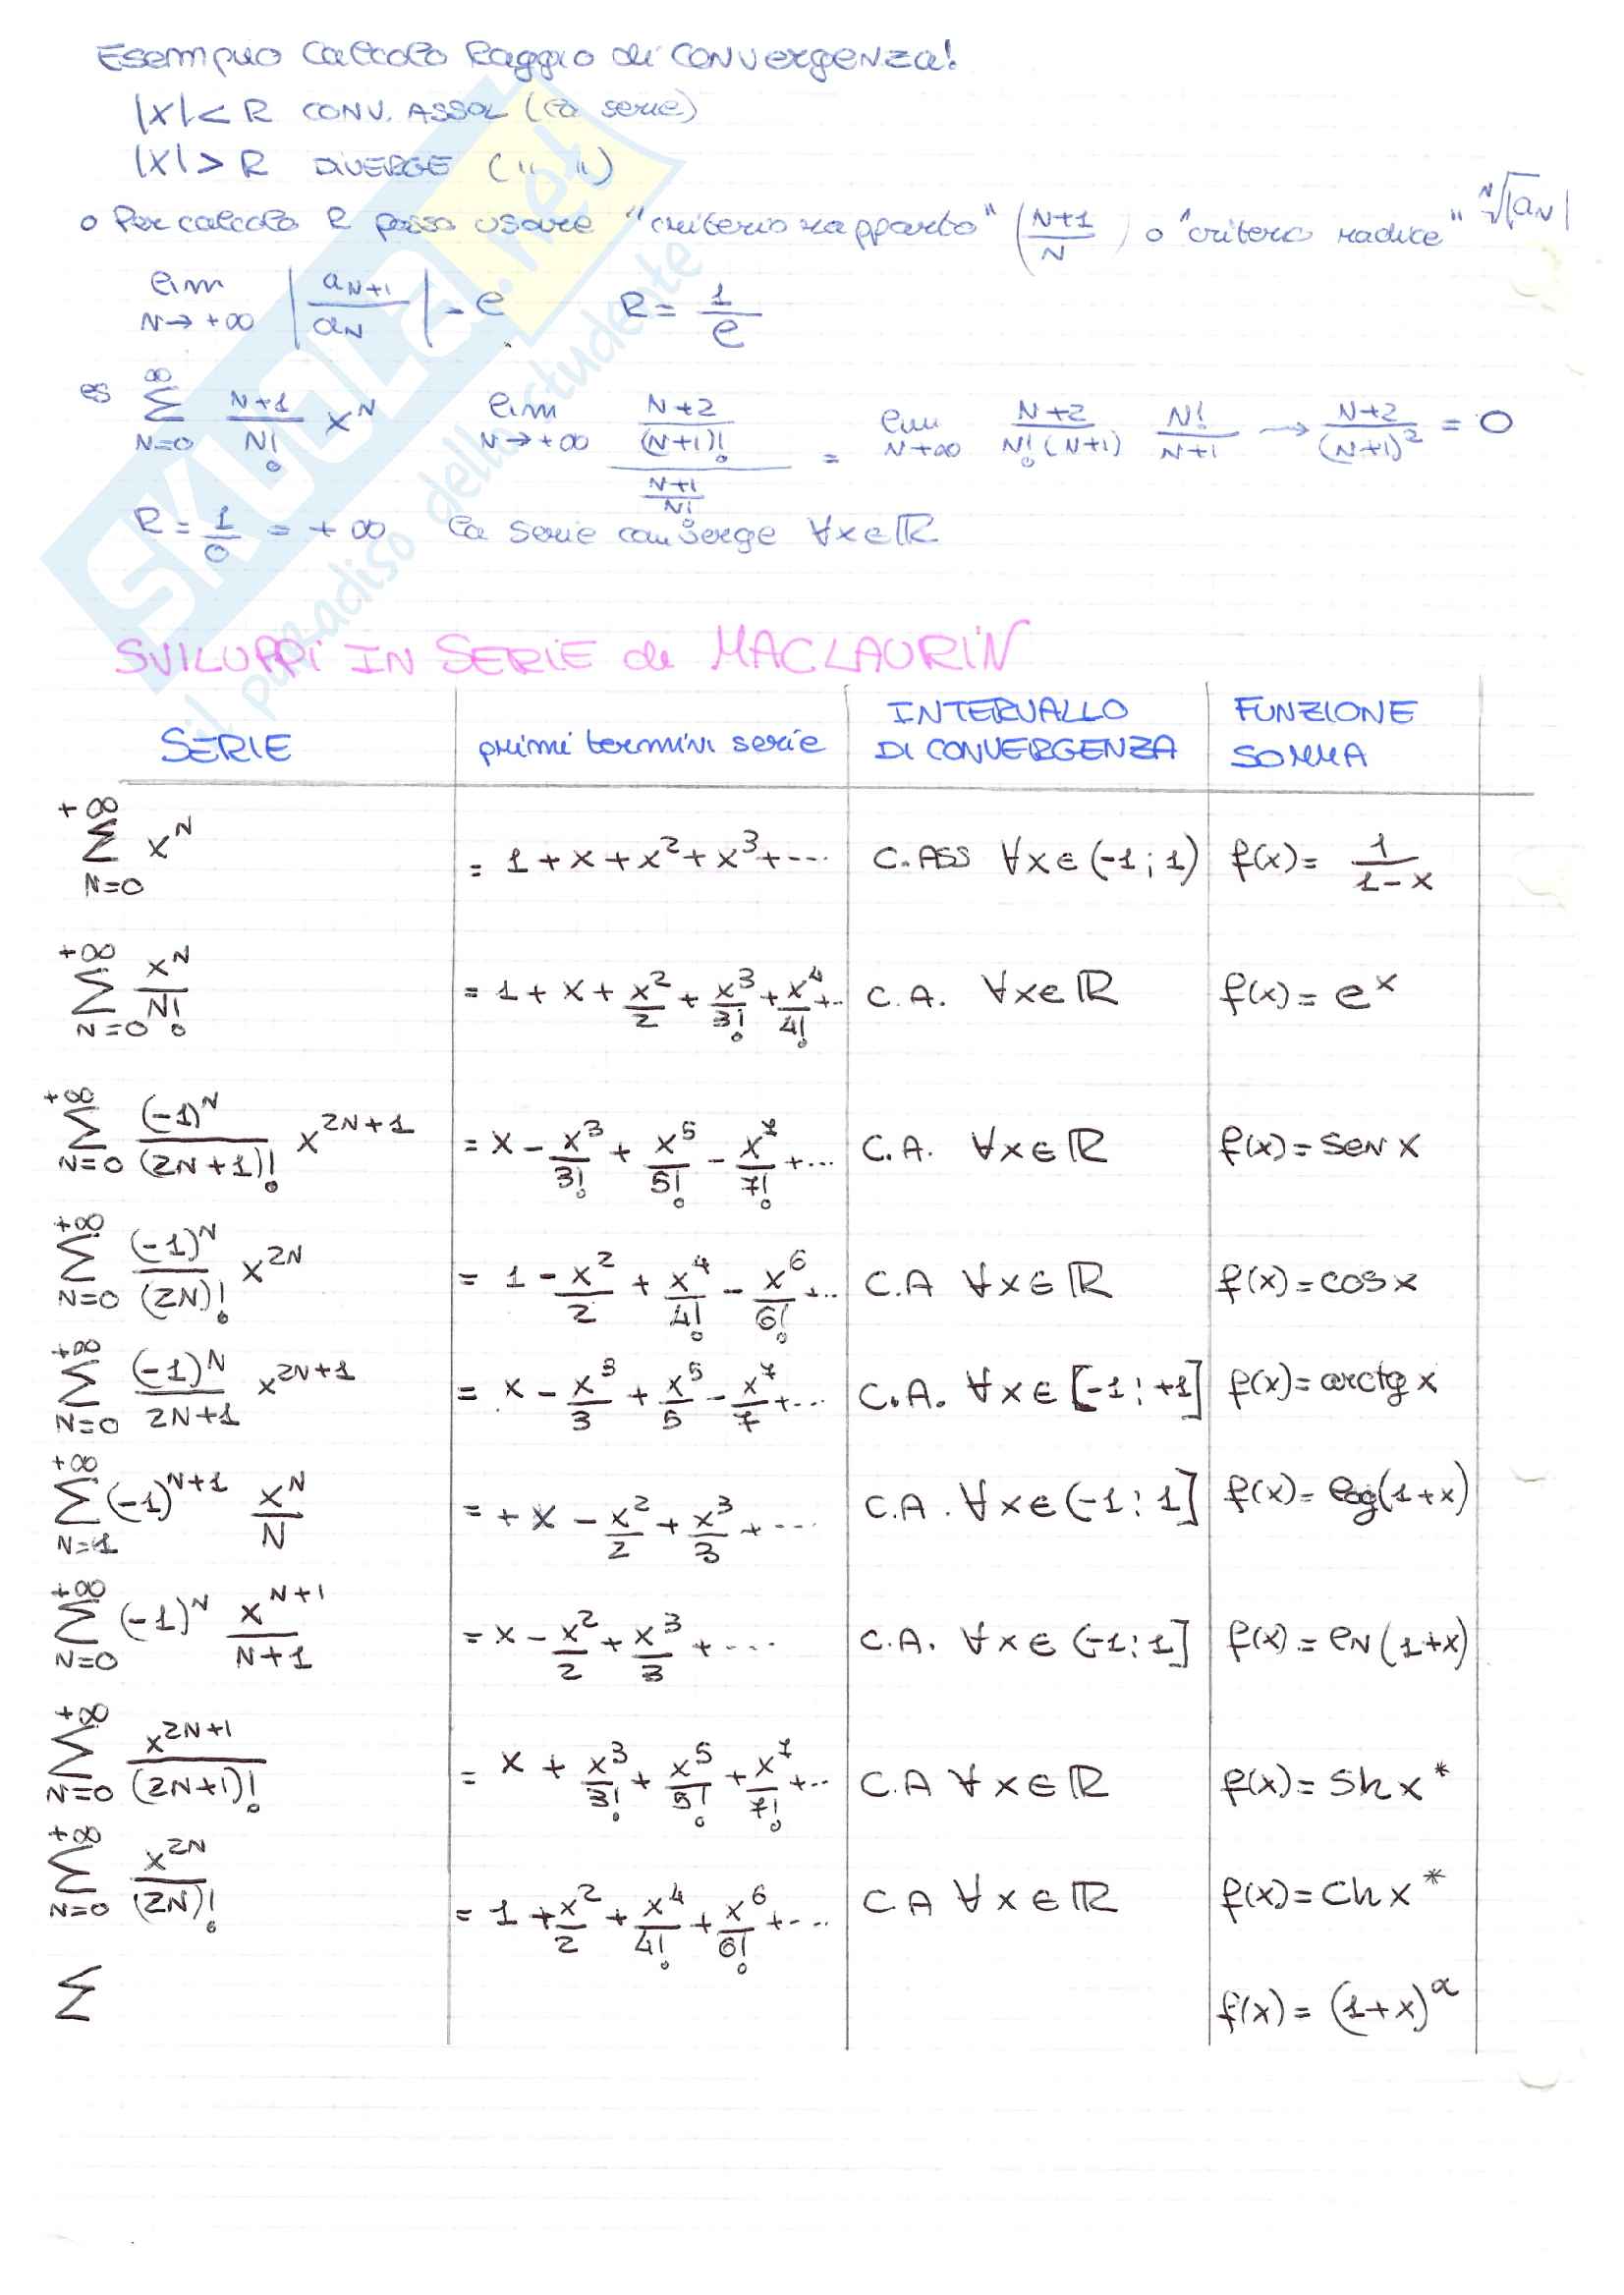 Esempio Calcolo Raggio di CONVERGENZA!
|X| < R CONV. ASSOL (la serie)
|X| > R DIVERGE (" ")
o Per calcolo R posso usare "criterio rapporto" (N+1/N) o "criterio radice" ᴺ√|aN|
lim N→+∞ |aN+1/aN| = l R = 1/l
es ∞ Σ N=0 N+1/N! x^N lim N→+∞ (N+2/(N+1)!)/(N+1/N!) = lim N→+∞ N+2/N!(N+1) N!/N+1 → N+2/(N+1)² = 0
R = 1/0 = +∞ la serie converge ∀x∈ℝ
SVILUPPI IN SERIE di MACLAURIN
SERIE primi termini serie INTERVALLO DI CONVERGENZA FUNZIONE SOMMA
+∞ Σ N=0 x^N = 1+x+x²+x³+... C.ASS ∀x∈(-1;1) f(x)= 1/1-x
+∞ Σ N=0 x^N/N! = 1+x+x²/2+x³/3!+x⁴/4!+.. C.A. ∀x∈ℝ f(x)=e^x
+∞ Σ N=0 (-1)^N/(2N+1)! x^2N+1 = x-x³/3!+x⁵/5!-x⁷/7!+... C.A. ∀x∈ℝ f(x)=sen x
+∞ Σ N=0 (-1)^N/(2N)! x^2N = 1-x²/2+x⁴/4!-x⁶/6!+.. C.A ∀x∈ℝ f(x)=cos x
+∞ Σ N=0 (-1)^N/2N+1 x^2N+1 = x-x³/3+x⁵/5-x⁷/7+... C.A. ∀x∈[-1;+1] f(x)=arctg x
+∞ Σ N=1 (-1)^N+1 x^N/N = +x-x²/2+x³/3+... C.A. ∀x∈(-1;1] f(x)=log(1+x)
+∞ Σ N=0 (-1)^N x^N+1/N+1 = x-x²/2+x³/3+... C.A. ∀x∈(-1;1] f(x)=lN(1+x)
+∞ Σ N=0 x^2N+1/(2N+1)! = x+x³/3!+x⁵/5!+x⁷/7!+.. C.A ∀x∈ℝ f(x)=Sh x*
+∞ Σ N=0 x^2N/(2N)! = 1+x²/2+x⁴/4!+x⁶/6!+... C A ∀x∈ℝ f(x)=Ch x*
Σ f(x)=(1+x)^α
SKUOLA.net
il paradiso dello studente